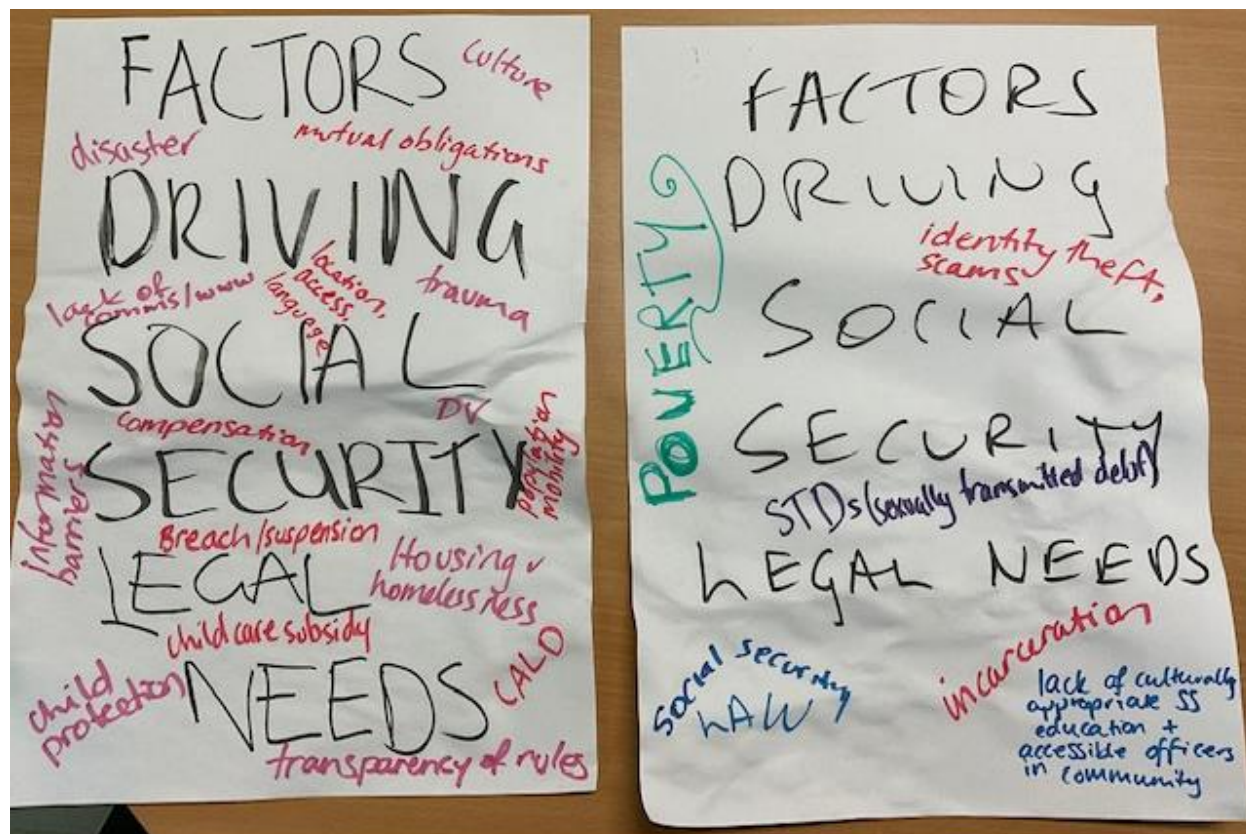 FACTORS
culture
disaster
mutual obligations
DRIVING
lack of
comms/www
location,
access,
language
trauma
SOCIAL
compensation
DV
population
mobility
information
barriers
SECURITY
Breach/suspension
Housing
homelessness
LEGAL
child care subsidy
CALD
child
protection
NEEDS
transparency of rules
FACTORS
DRIVING
POVERTY
identity theft,
scams
SOCIAL
SECURITY
STDs (sexually transmitted debt)
LEGAL NEEDS
social security
LAW
incarceration
lack of culturally
appropriate SS
education +
accessible officers
in community